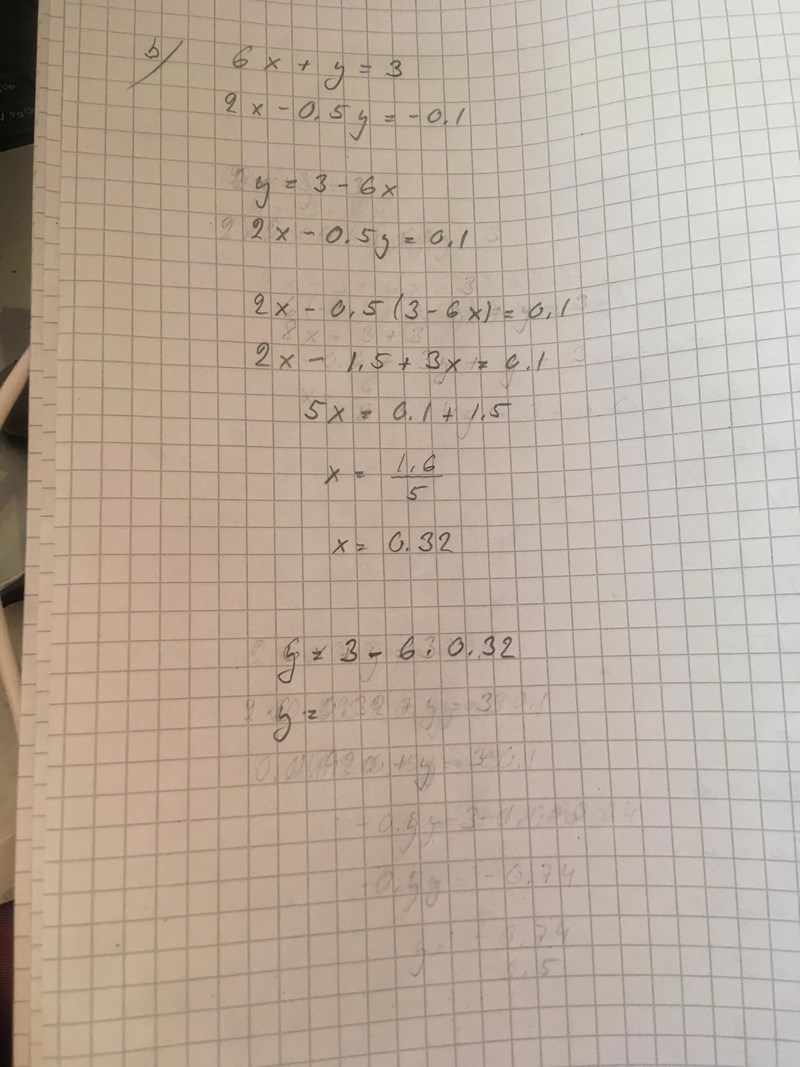 b/ 6x + y = 3
2x - 0.5y = -0.1
y = 3 - 6x
2x - 0.5y = 0.1
2x - 0.5 (3 - 6x) = 0.1
2x - 1.5 + 3x = 0.1
5x = 0.1 + 1.5
x = 1.6/5
x = 0.32
y = 3 - 6 · 0.32
y =